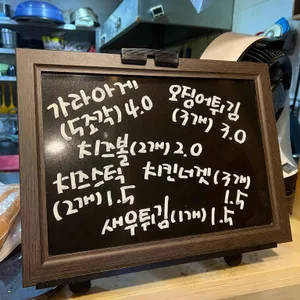 가라아게
(5조각) 4.0
오징어튀김
(3개) 3.0
치즈볼(2개) 2.0
치즈스틱
(2개) 1.5
치킨너겟(3개)
1.5
새우튀김(1개) 1.5